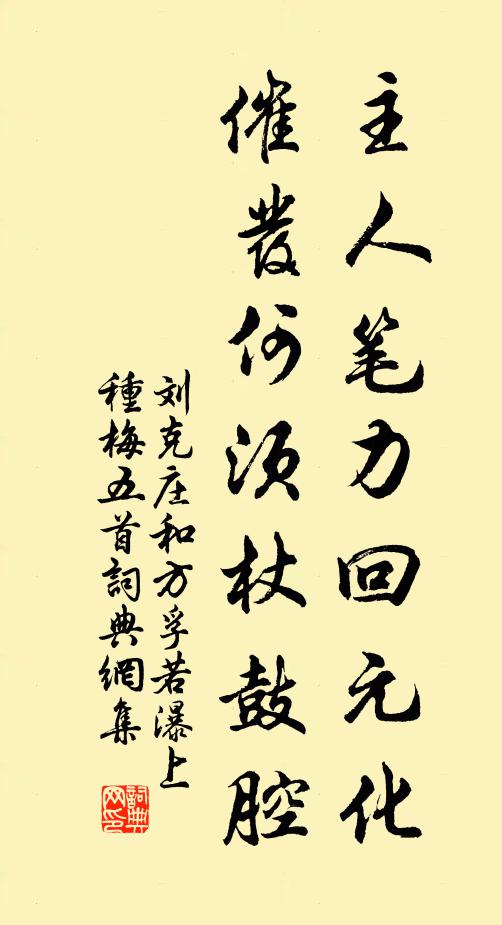 主人笔力回元化
催發何须杖鼓腔
刘克庄和方孚若瀑上
種梅五首詞典網集
詞典网印